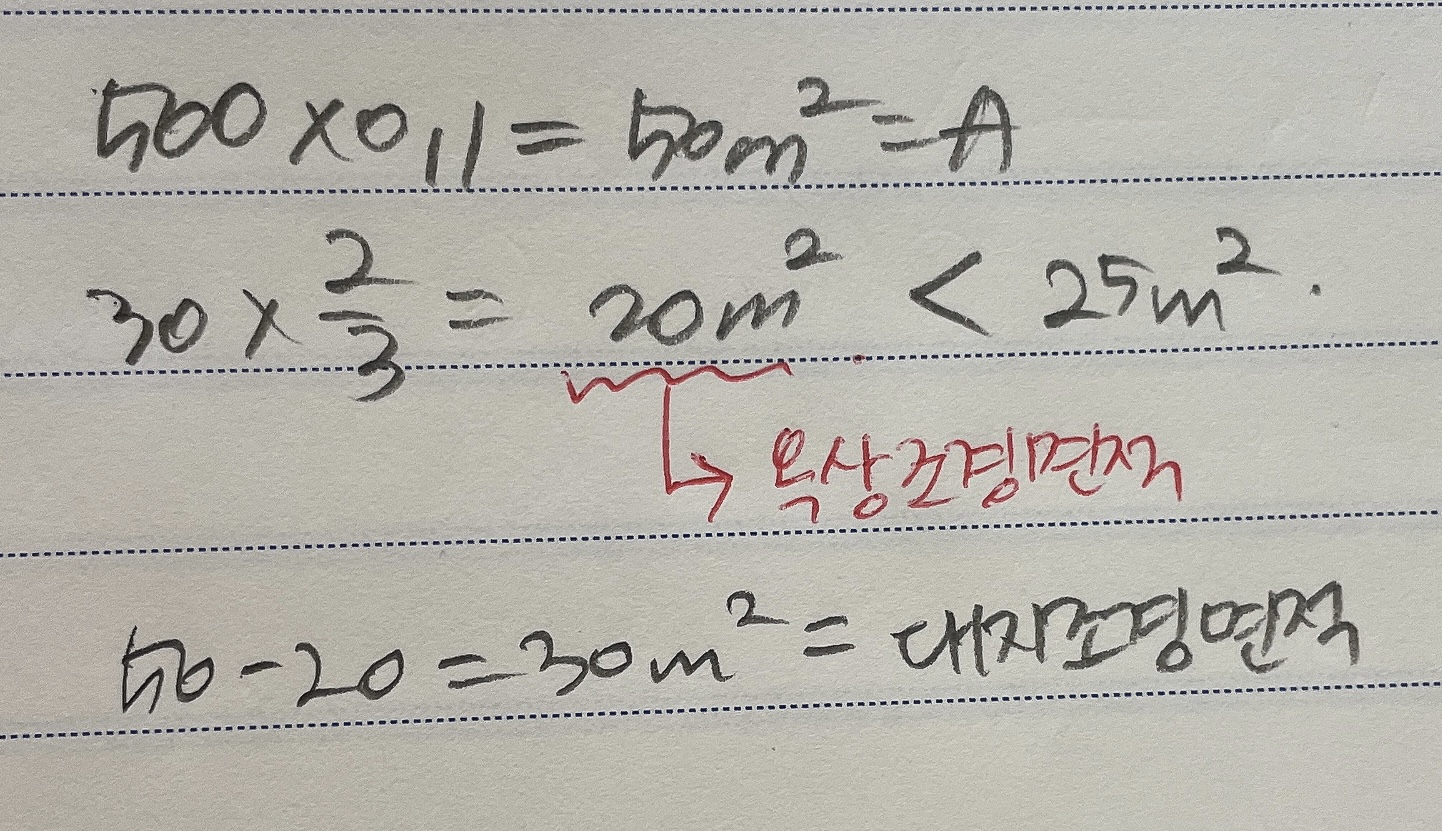 500 × 0,1 = 50m² = A
30 × 2/3 = 20m² < 25m².
→ 옥상조경면적
50 - 20 = 30m² = 대지조경면적